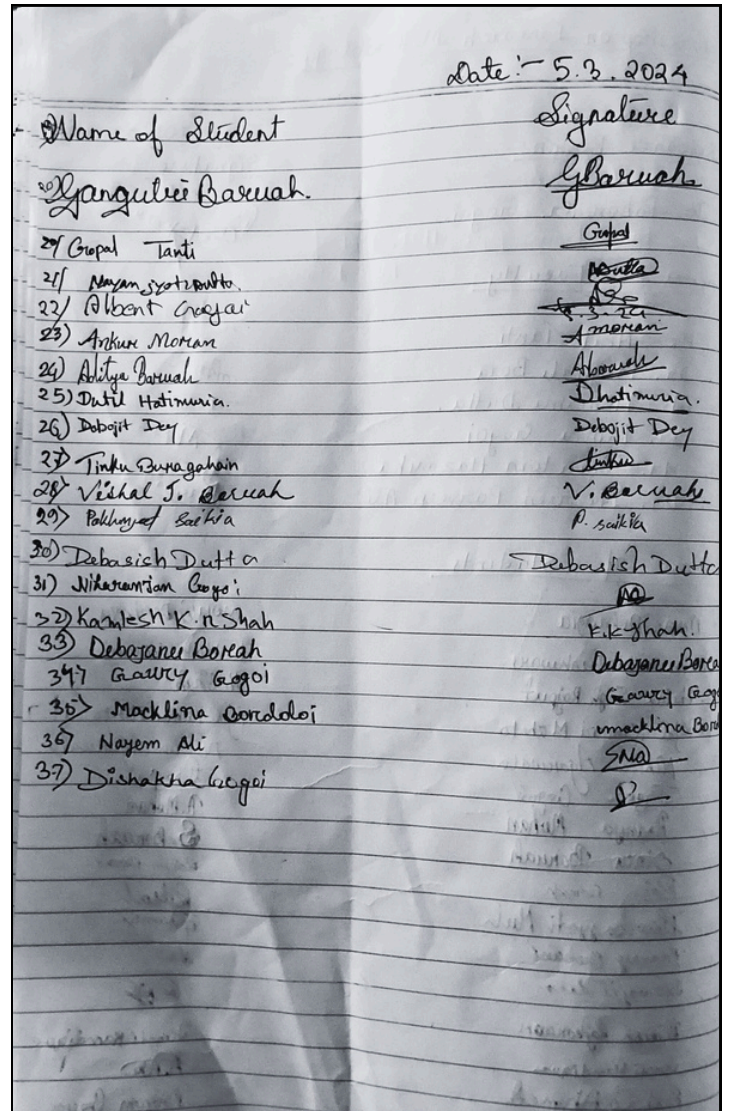 Date :- 5.3.2024
Name of Student Signature
Gangulee Baruah. GBaruah
20/ Gopal Tanti Gopal
21/ Nayan jyoti Dutta. NDutta
22/ Albent Gogoi 5.3.24
23) Ankur Moran A moran
24) Aditya Baruah Abaruah
25) Dulil Hatimuria. Dhatimuria.
26) Debojit Dey Debojit Dey
27) Tinku Buragahain tinku
28) Vishal J. Baruah V. Baruah
29) Saikia P. saikia
30) Debasish Dutta Debasish Dutta
31) Niharanjan Gogoi
32) Kamlesh K. n Shah K.K Shah.
33) Debajanee Boreah Debajanee Borea
34) Gaury Gogoi Gaury Gog
35) Macklina Bordoloi macklina Bor
36) Nayem Ali SNA
37) Dishakha Gogoi